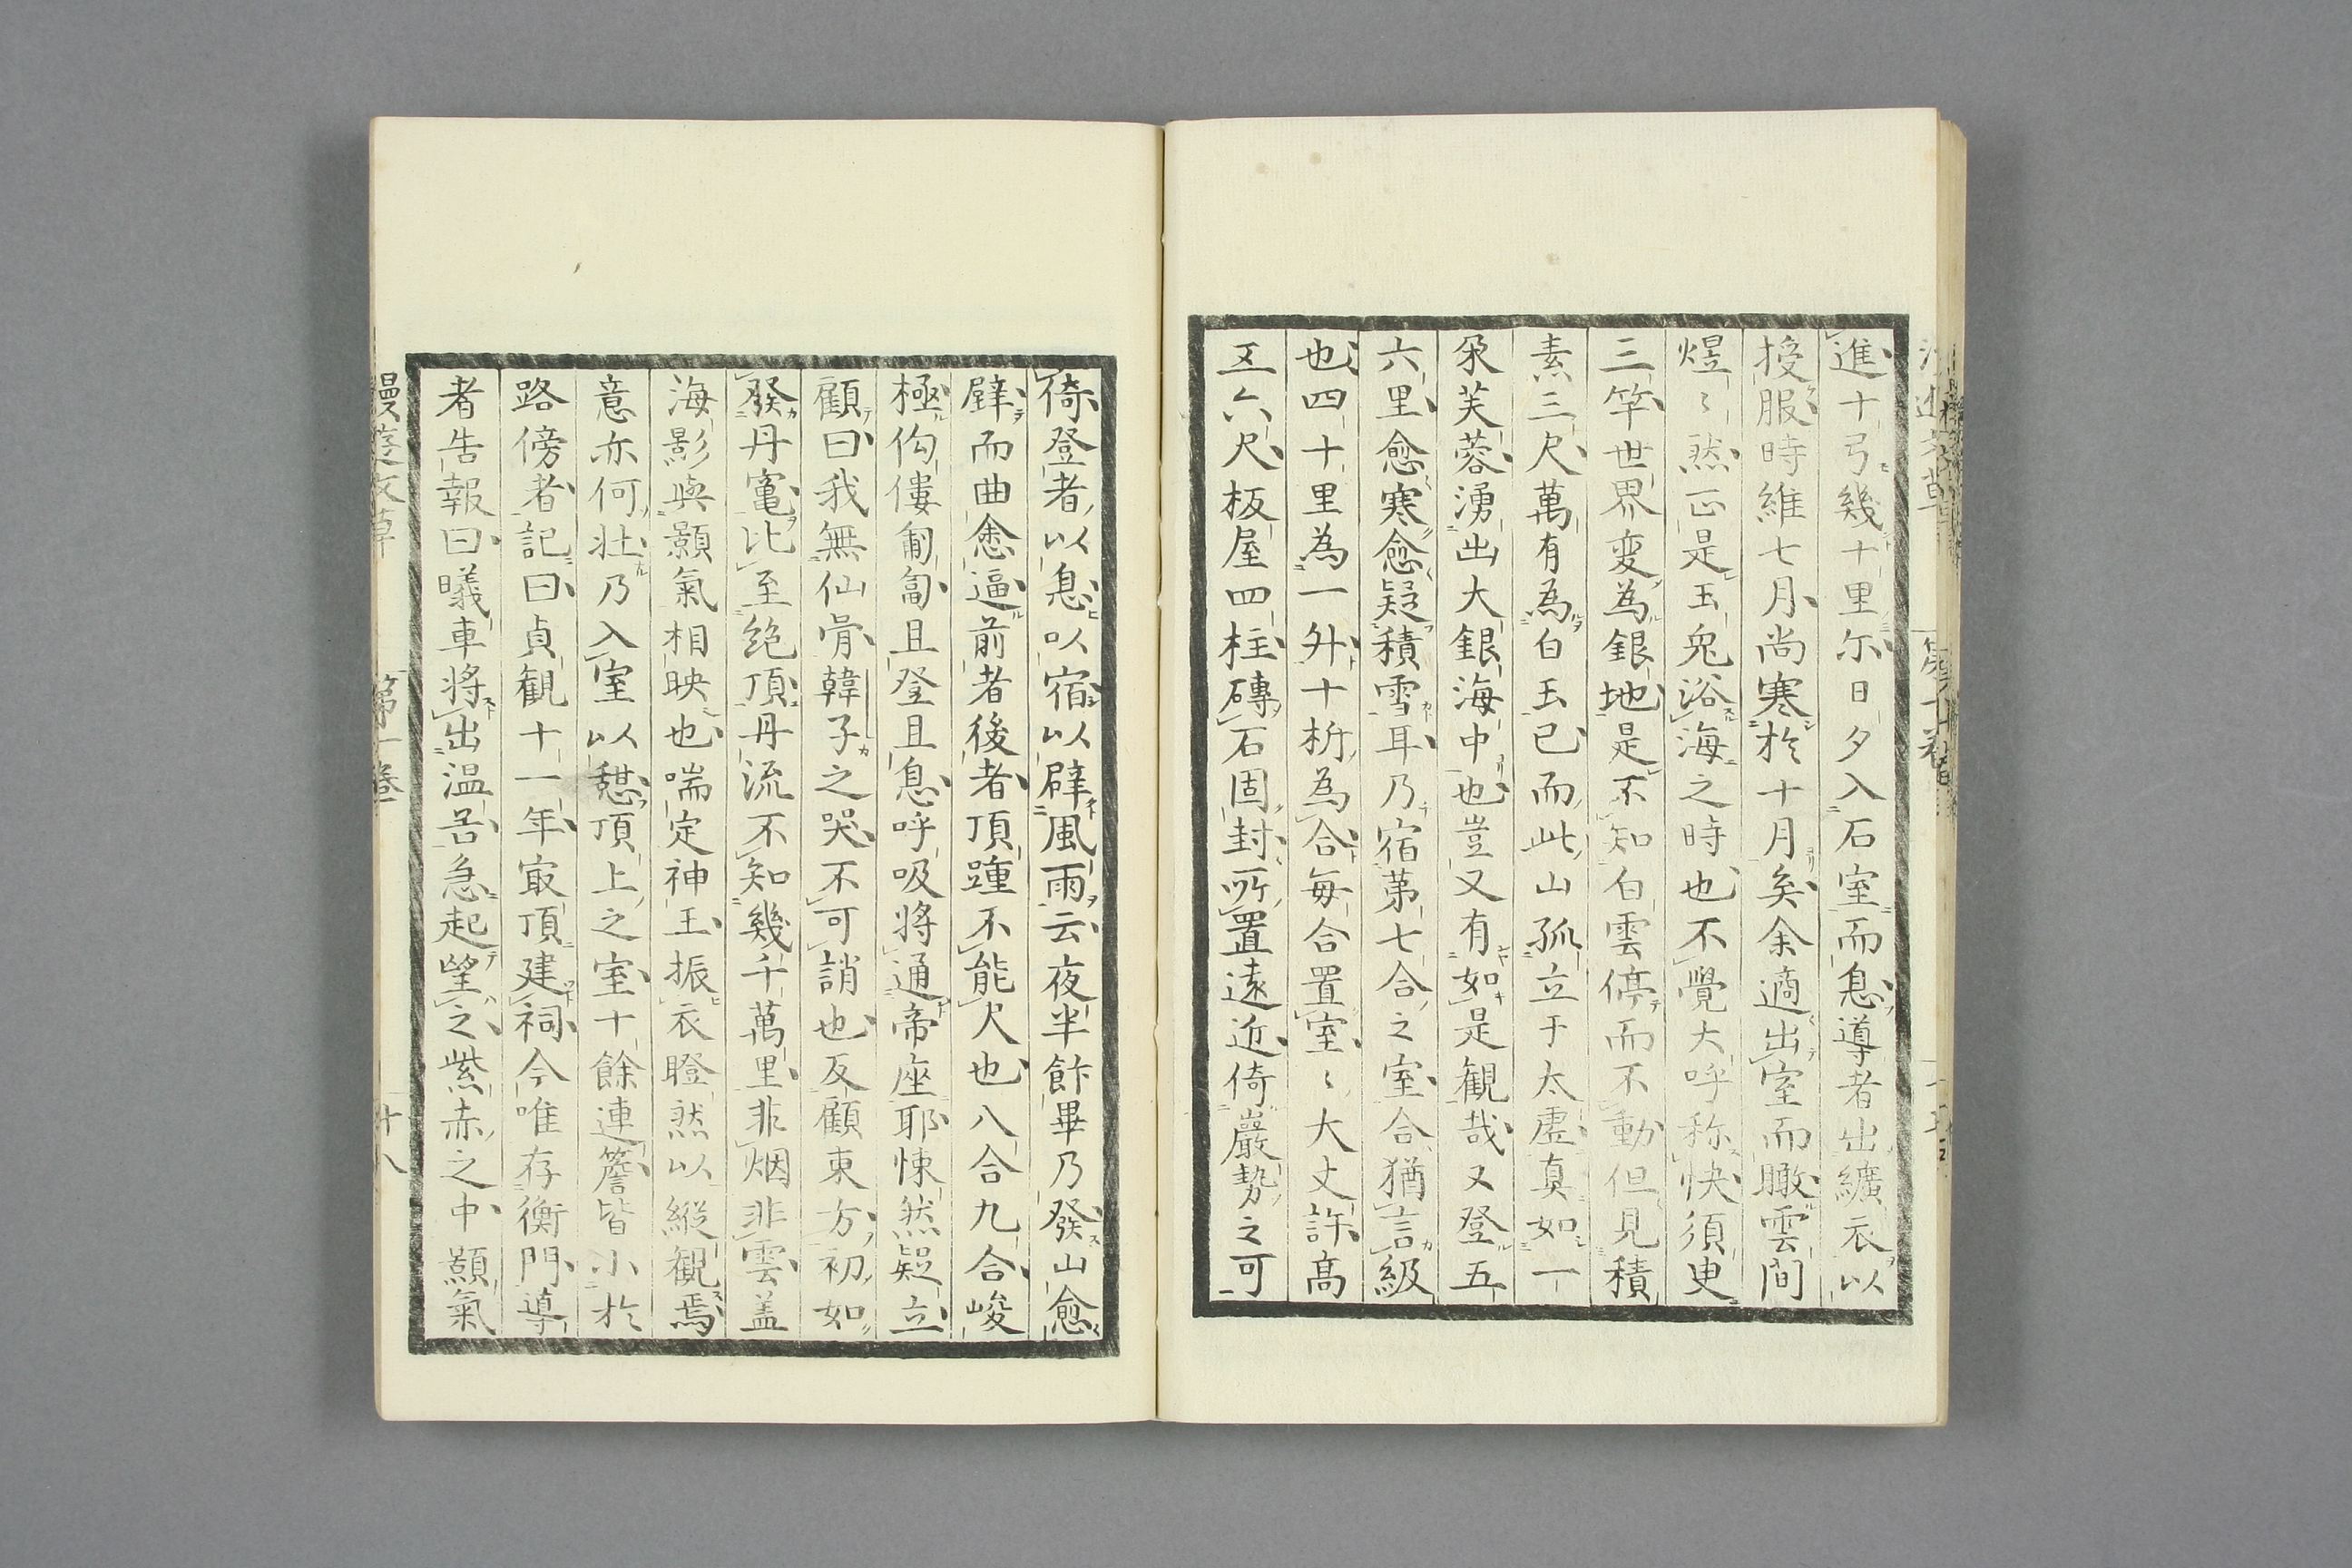 進十弓幾十里尓日夕入石室而息導者出纊衣以
授服時維七月尚寒於十月矣余適出室而瞰雲間
煜〻然正是玉兎浴海之時也不覺大呼称快須臾
三竿世界変為銀地是不知白雲停而不動但見積
素三尺萬有為白玉已而此山孤立于太虚真如一
朶芙蓉湧出大銀海中也豈又有如是観哉又登五
六里愈寒愈疑積雪耳乃宿第七合之室合猶言級
也四十里為一升十析為合毎合置室〻大丈許高
五六尺板屋四柱磚石固封所置遠近倚巖勢之可
倚登者以息以宿以辟風雨云夜半飰畢乃發山愈
辟而曲愈逼前者後者頂踵不能尺也八合九合峻
極佝僂匍匐且登且息呼吸将通帝座耶悚然疑立
顧曰我無仙骨韓子之哭不可誚也反顧東方初如
發丹竃比至绝頂丹流不知幾千萬里非烟非雲盖
海影與顥氣相映也喘定神王振衣瞪然以縦観焉
意亦何壮乃入室以憇頂上之室十餘連簷皆小於
路傍者記曰貞観十一年冣頂建祠今唯存衡門導
者告報曰曦車将出温呑急起望之紫赤之中顥氣
漫遊文草
第一巻
十八